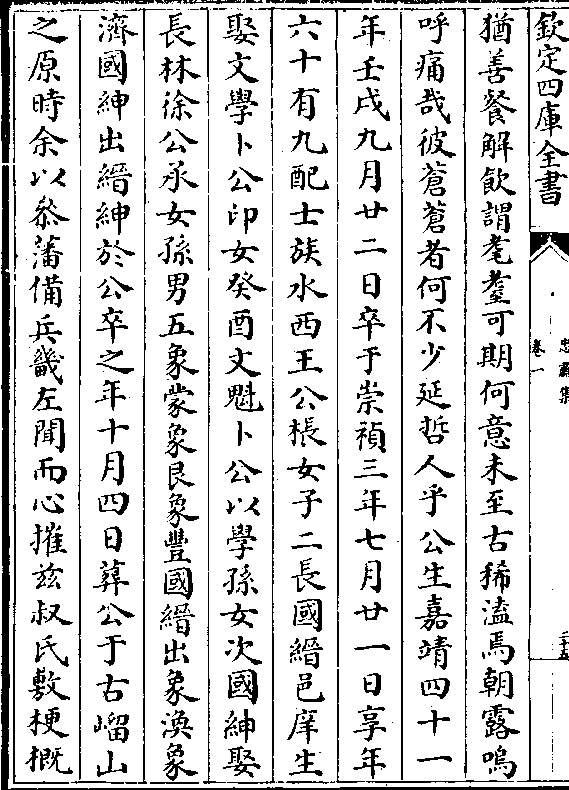 欽定四庫全書
忠肅集
卷一
猶善餐解飲謂耄耋可期何意未至古稀溘焉朝露嗚
呼痛哉彼蒼蒼者何不少延哲人乎公生嘉靖四十一
年壬戌九月廿二日卒于崇禎三年七月廿一日享年
六十有九配士族水西王公棖女子二長國縉邑庠生
娶文學卜公印女癸酉文魁卜公以學孫女次國紳娶
長林徐公丞女孫男五象蒙象艮象豐國縉出象渙象
濟國紳出縉紳於公卒之年十月四日葬公于古㟍山
之原時余以叅藩備兵畿左聞而心摧兹叔氏敷梗概